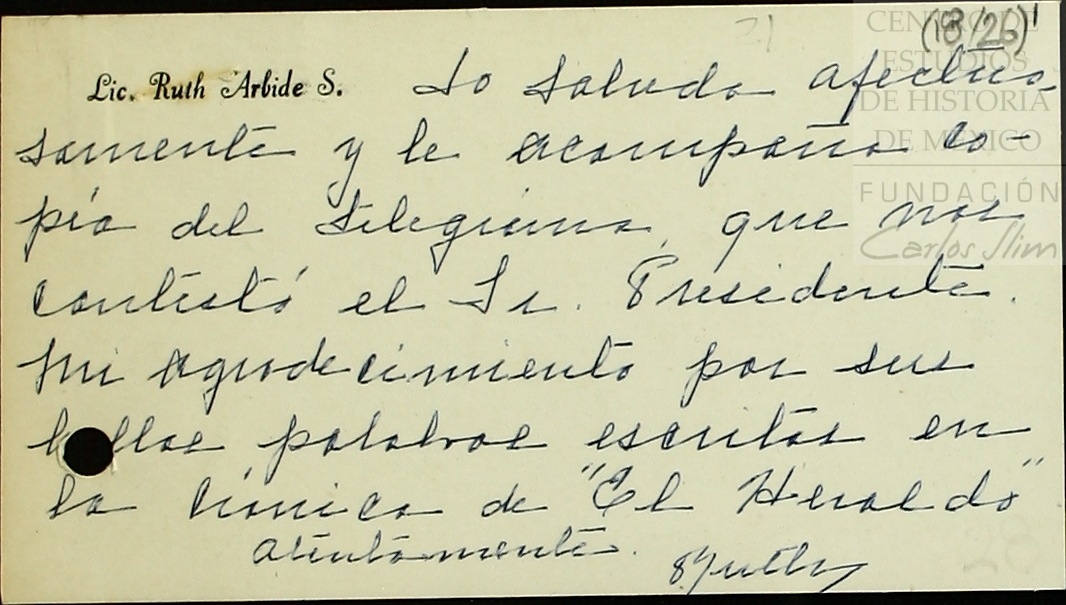 (18/26) 1
CENTRO DE
ESTUDIOS
DE HISTORIA
DE MÉXICO
FUNDACIÓN
Carlos Slim
Lic. Ruth Arbide S. Lo saluda afectuo-
samente y le acompaña co-
pia del telegrama, que nos
contestó el Sr. Presidente.
Mi agradecimiento por sus
bellas palabras escritas en
la crónica de "El Heraldo"
atentamente.
Ruth